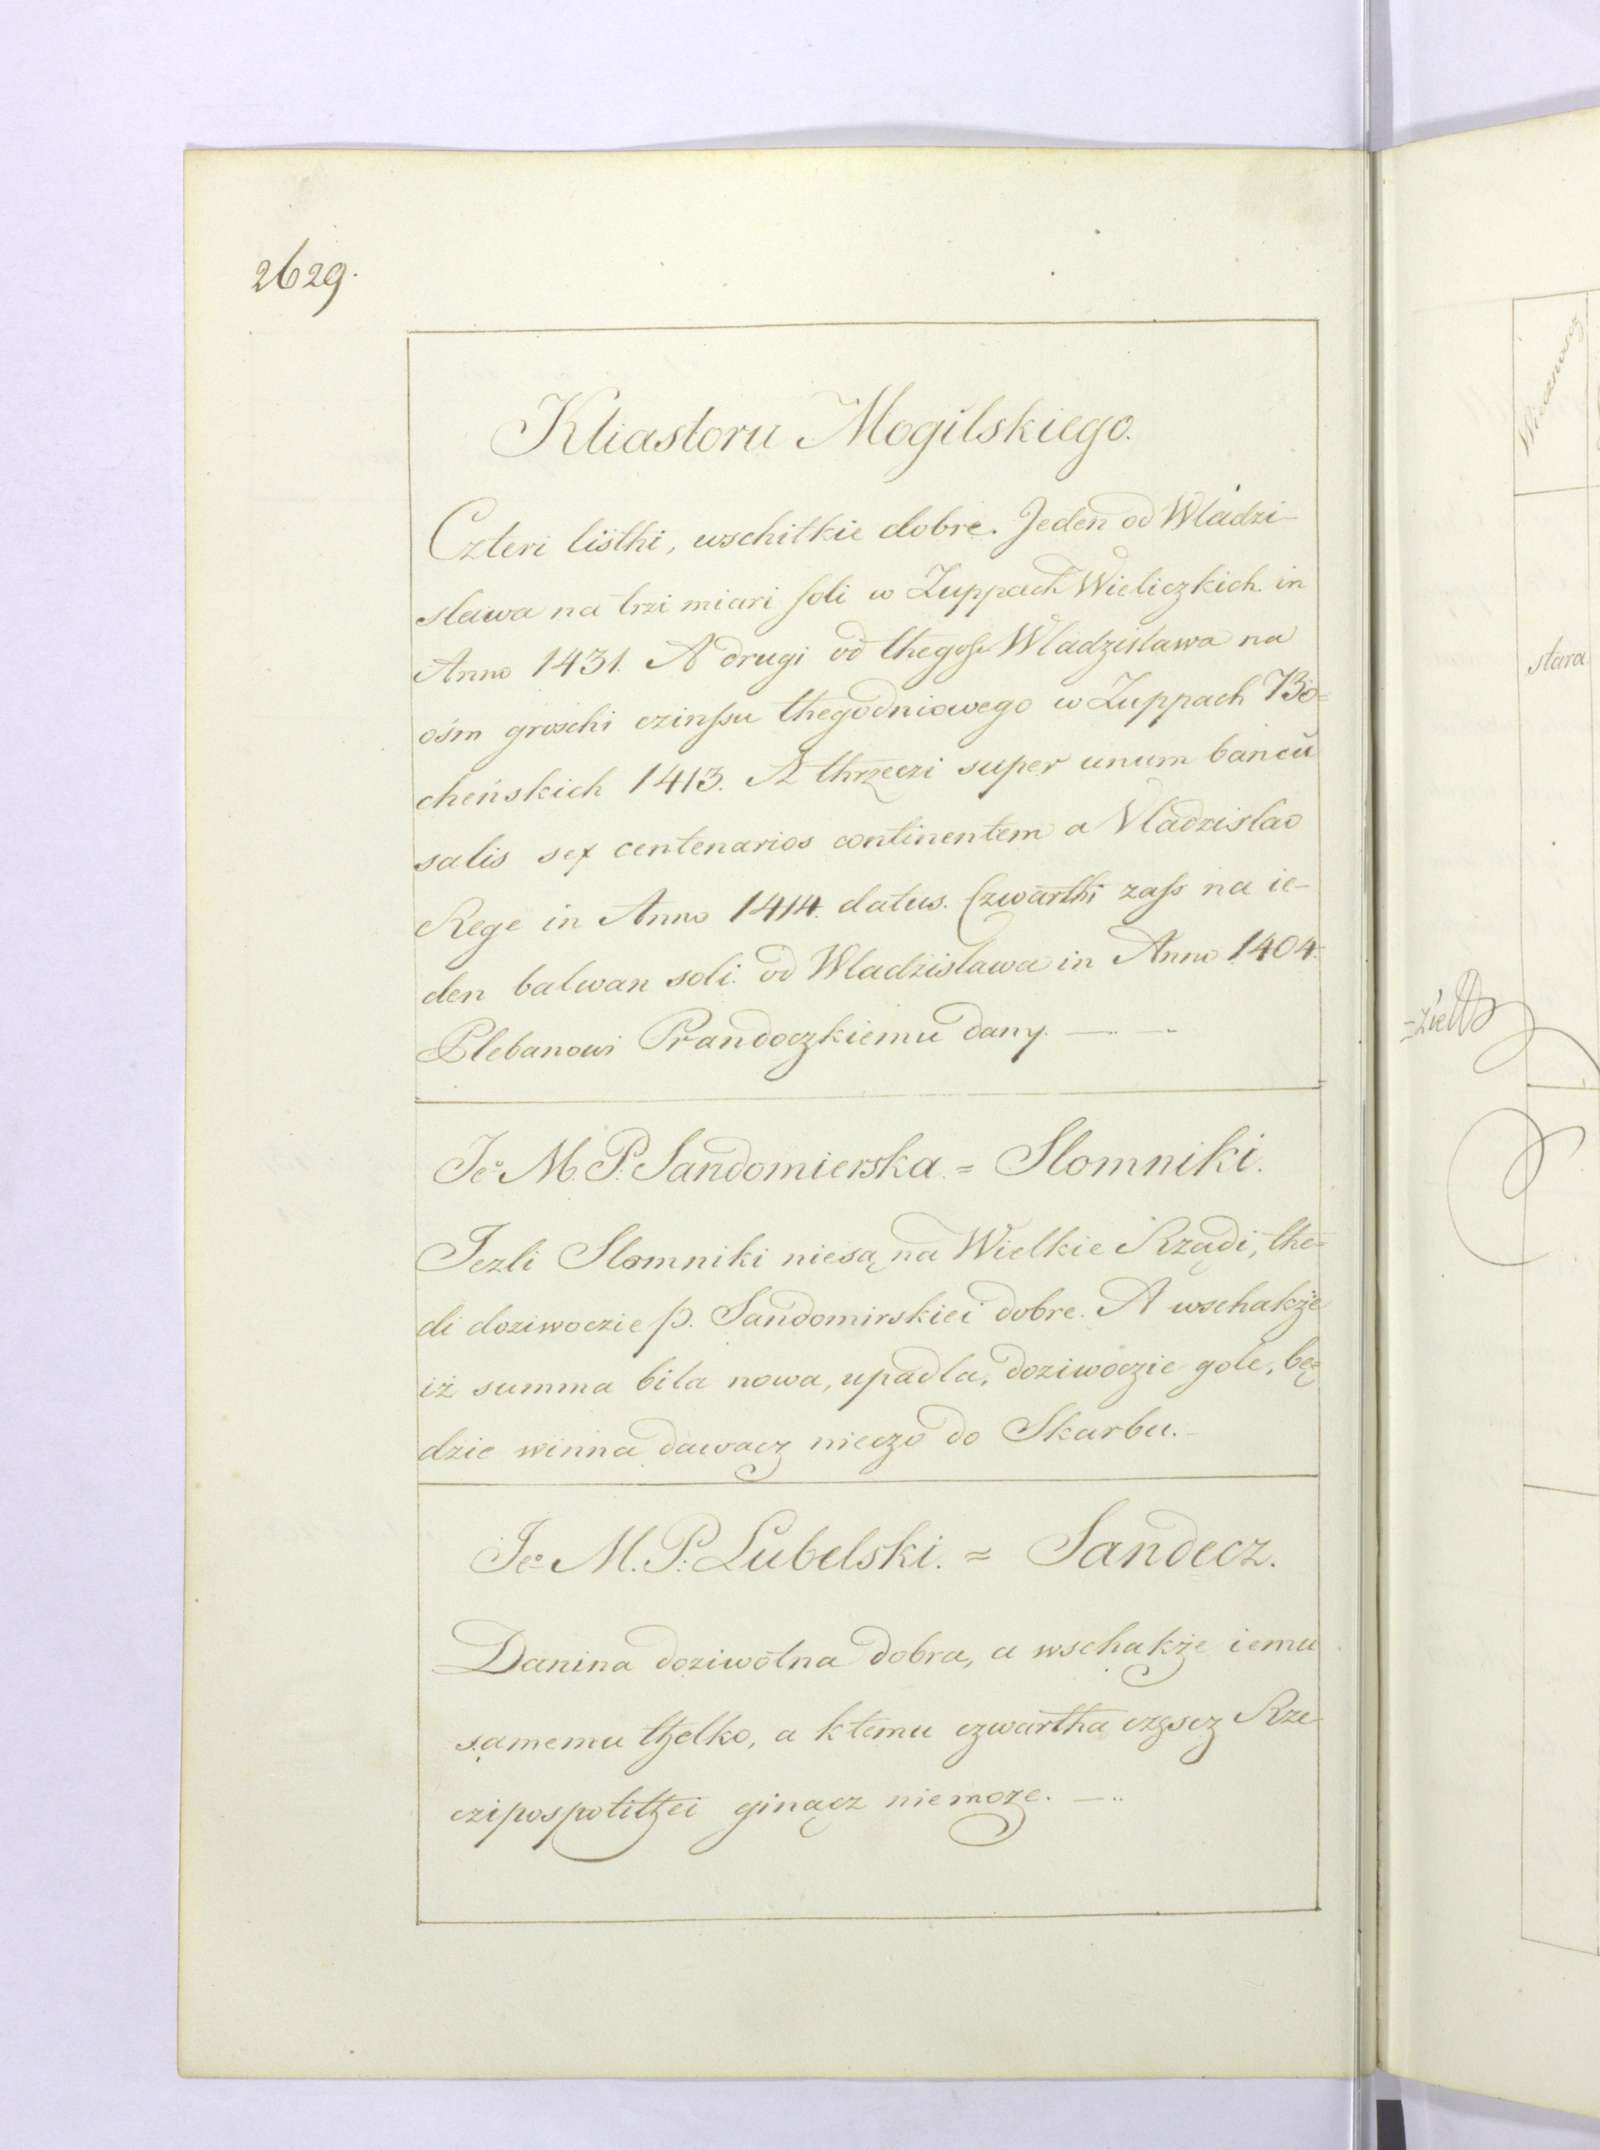 2629.
Kliastoru Mogilskiego.
Czteri listhi, wschitkie dobre. Jeden od Wladzi-
slawa na trzi miari soli w Zuppach Wieliczkich. in
Anno 1431. A drugi od thegoss Wladzislawa na
ośm groschi czinssu thegodniowego w Zuppach Bo-
cheńskich 1413. A thrzeczi super unum bancũ
salis sex centenarios continentem a Vladzislao
Rege in Anno 1414. datus. Czwarthi zass na ie-
den balwan soli. od Wladzislawa in Anno 1404.
Plebanowi Prandoczkiemu dany. — —
Jeo M. P. Sandomierska. = Slomniki.
Jezli Slomniki niesą na Wielkie Rządi, the-
di doziwoczie p. Sandomirskiei dobre. A wschakże
iż summa bila nowa, upadla, doziwoczie gole, bę-
dzie winna dawacz nieczo do Skarbu. -
Jeo M. P. Lubelski. = Sandecz.
Danina doziwotna dobra, a wschakże iemu
samemu tyelko, a ktemu czwartha częscz Rze-
czipospolityei ginącz niemoże. —..
stara